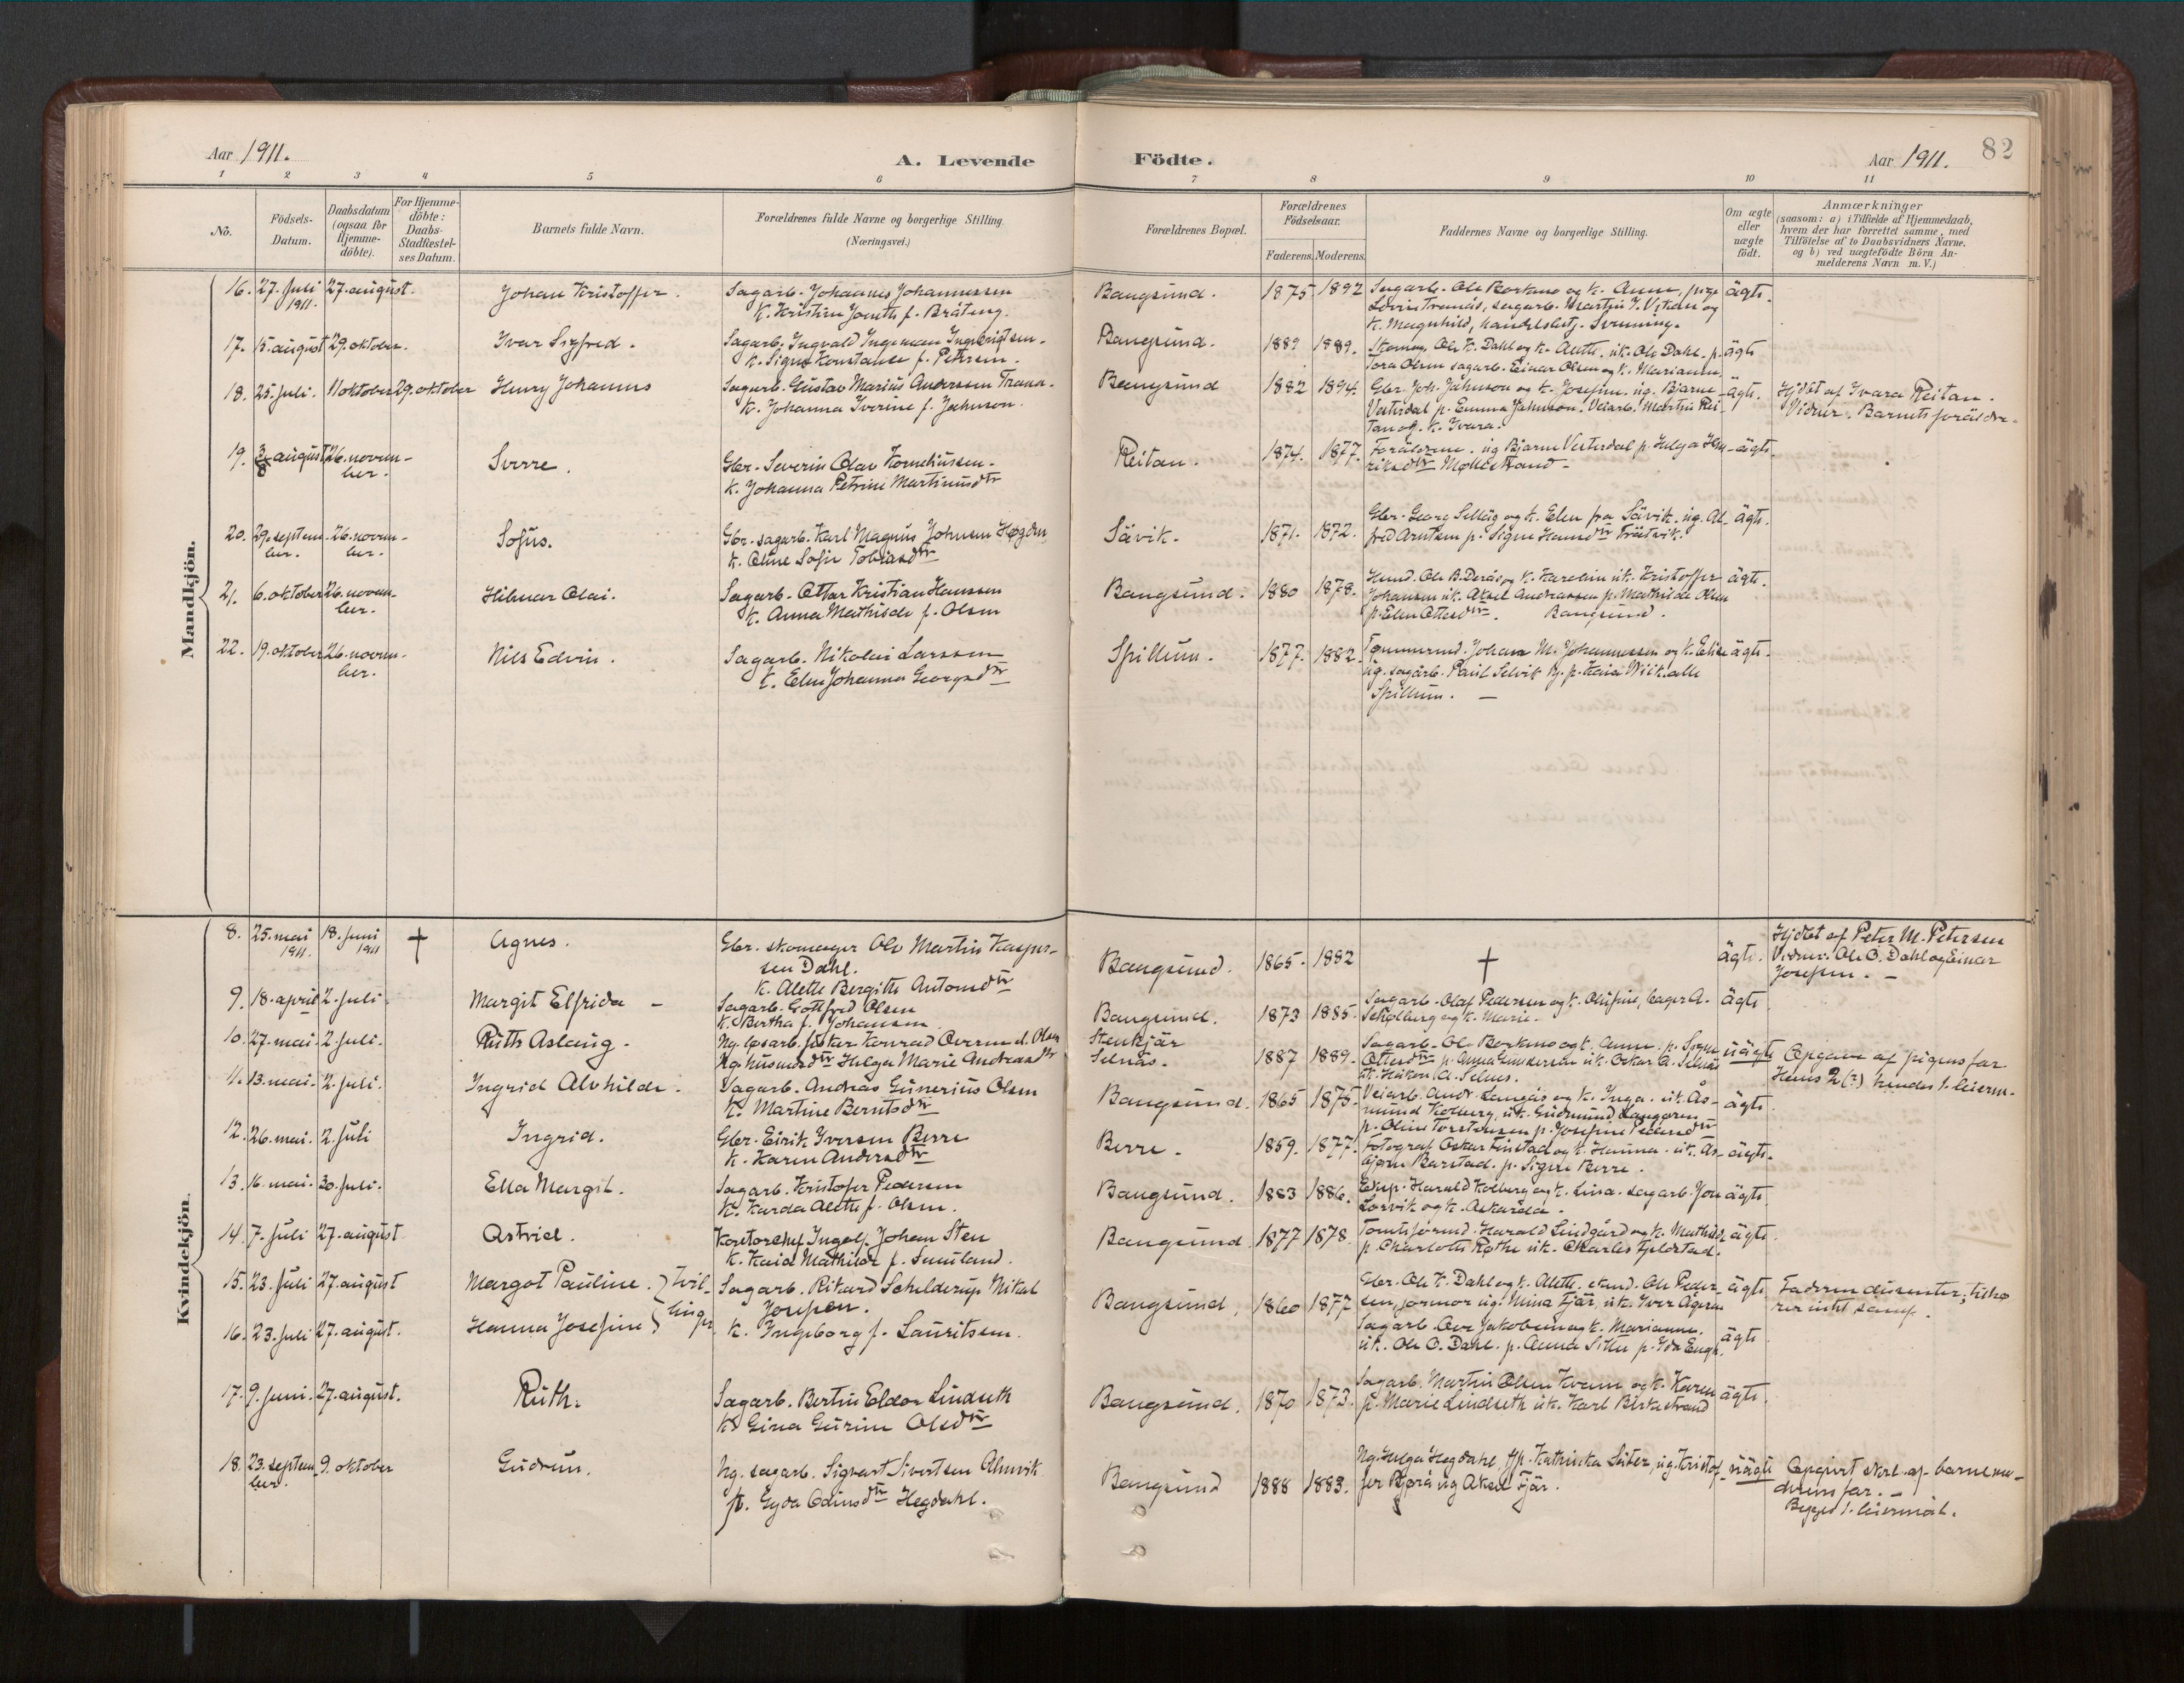 Aar 1911.
A. Levende
Födte.
Aar 1911.
82
1 2 3 4 5 6 7 8 9 10 11
No.
Födsels-Datum.
Daabsdatum (ogsaa for Hjemme-döbte).
For Hjemme-döbte: Daabs-Stadfæstel-ses Datum.
Barnets fulde Navn.
Forældrenes fulde Navne og borgerlige Stilling.
(Næringsvei.)
Forældrenes Bopæl.
Forældrenes Födselsaar.
Faderens. Moderens.
Faddernes Navne og borgerlige Stilling.
Om ægte eller uægte födt.
Anmærkninger
(saasom: a) i Tilfælde af Hjemmedaab,
hvem der har forrettet samme, med
Tilföielse af to Daabsvidners Navne,
og b) ved uægtefödte Börn An-
melderens Navn m. V.)
Mandkjön.
16. 27. juli 1911. 27. august. Johan Kristoffer.
Sagarb. Johannes Johannessen
Bangsund. 1875 1892 Sagarb. Ole Borkmo og k. Anne,
ägte.
k. Magnhild, handelsbetj. Svenning.
17. 15. august 29. oktober. Ivar Sigfred.
Sagarb. Ingvald Ingeman Ingebrigtsen.
k. Signe Konstanse f. Petersen.
Bangsund. 1889 1889. Skomag. Ole K. Dahl og k. Alette. uk. Ole Dahl. p.
Tora Olsen sagarb. Einar Olsen og k. Marianne.
ägte
18. 25. juli. 11 oktober 29. oktober Henry Johannes
Sagarb. Gustav Marius Anderssen Trana.
k. Johanna Iverine f. Jahnson.
Bangsund 1882 1894. Gbr. Joh. Jahnson og k. Josefine. ug. Bjarne
Vesterdal p. Emma Jahnson. Veiarb. Martin Rei-
tan og k. Ivara.
ägte. Hjdöbt af Ivara Reitan.
Vidner. Barnets foräldre.
19. 3/8 august 26. novem-
ber.
Sverre.
Gbr. Severin Olav Korneliussen.
k. Johanna Petrine Martinusdtr
Reitan. 1874. 1877. Foräldrene. ug. Bjarne Vesterdal p. Helga Hen-
riksdtr Møllestrand.
ägte.
20. 29. septem-
ber. 26. novem-
ber.
Sofus.
Gbr. sagarb. Karl Magnus Johnsen Høgden
k. Oline Sofie Tobiasdtr
Sävik. 1871. 1872. Gbr. Georg Selläg og k. Elen fra Sävik. ug. Al-
fred Arntsen p. Signe Hansdtr Träetvik.
ägte.
21. 6. oktober 26. novem-
ber.
Hilmar Olai.
Sagarb. Ottar Kristian Hanssen
k. Anna Mathilde f. Olsen
Bangsund. 1880 1878. Husmd. Ole B. Derås og k. Karoline uk. Kristoffer
Johansen uk. Aksel Andreassen p. Mathilde Olsen
p. Elen Ottesdtr. Bangsund.
ägte.
22. 19. oktober 26. novem-
ber.
Nils Edvin.
Sagarb. Nikolai Larssen
k. Elen Johanna Georgsdtr
Spillum. 1877. 1882. Tømmermd. Johan M. Johannessen og k. Elise
ug. sagarb. Paul Selvik p. Kaia Wiik. alle
Spillum.
ägte.
Kvindekjön.
8. 25. mai 1911. 18. juni 1911 † Agnes.
Gbr. skomager Ole Martin Kasper-
sen Dahl.
k. Alette Bergitte Antonsdtr
Bangsund. 1865. 1882 † ägte.
Hjdöbt af Peter M. Petersen
Vidner: Ole O. Dahl og Einar
Josefsen.
9. 18. april 2. juli Margit Elfrida
Sagarb. Gottfred Olsen
k. Bertha f. Johansen
Bangsund. 1873 1885. Sagarb. Olaf Pedersen og k. Olufine, bager A.
Schølberg og k. Marie.
ägte
10. 27. mai. 2. juli. Ruth Aslaug.
Ug. husmdtr Helga Marie Andreasdtr
Stenkjär
Selnäs. 1887 1889. Sagarb. Ole Borkmo og k. Anne. p. Signe
uk. Håkon A. Selnes.
uägte Opgave af pigens far
Hans 2(?) hendes 1. leierm.
11. 13. mai. 2. juli. Ingrid Alvhilde.
Sagarb. Andreas Gunerius Olsen
k. Martine Berntsdtr
Bangsund. 1865 1875. Veiarb. Andr. Langås og k. Inga. uk. Ås-
mund Kolberg, uk. Gudmund Langåsen
p. Oline Torstensen p. Josefine Pedersdtr
ägte.
12. 26. mai. 2. juli Ingrid.
Gbr. Eirik Iversen Berre
k. Karen Andersdtr
Berre. 1859. 1877. Fotograf Oskar Finstad og k. Hanna. uk. As-
bjørn Barstad. p. Signe Berre.
ägte.
13. 16. mai. 30. juli. Ella Margit.
Sagarb. Kristofer Pedersen
k. Karda Alette f. Olsen.
Bangsund. 1883 1886. Harald Kolberg og k. Lina. sagarb. Jon
Lorvik og k. Askarda.
ägte.
14. 7. juli 27. august Astrid.
Kontorchef Ingolf Johan Sten
k. Kaia Mathilde f. Smuland.
Bangsund 1877 1878. Tomteformd. Harald Lindgård og k. Mathilde
p. Charlotte Rothe uk. Charles Fjeldstad.
ägte
15. 23. juli 27. august Margot Pauline. } Tvil-
16. 23. juli 27. august. Hanna Josefine } linger
Sagarb. Rikard Schelderup Mikal
Josefsen.
k. Ingeborg f. Lauritsen.
Bangsund. 1860 1877 Gbr. Ole K. Dahl og k. Alette. Ole Peder-
sen, jormor ug. Mina Fjär, uk. Iver
Sagarb. Ove Jakobsen og k. Marianne.
uk. Ole O. Dahl. p. Anna Sitter p. Ida Engn.
ägte. Faderen dissenter; tilhø-
rer intet samf.
ägte
17. 9. juni. 27. august. Ruth.
Sagarb. Bertin Eldor Lindseth
k. Gina Gurine Olsdtr
Bangsund. 1870 1873. Sagarb. Martin Olsen Kvam og k. Karen
p. Marie Lindseth uk. Karl Birkestrand
ägte.
18. 23. septem-
ber. 9. oktober Gudrun.
Ug. sagarb. Sigvart Sivertsen Almvik
p. Gyda Odinsdtr Hegdahl.
Bangsund 1888 1883. Ug. Helga Hegdahl, Kathinka Säter, ug. Kristof-
fer Bjørå ug. Aksel Fjär.
uägte Opgivet skrl. af barnemo-
derens far.
Begges 1. leiermål.